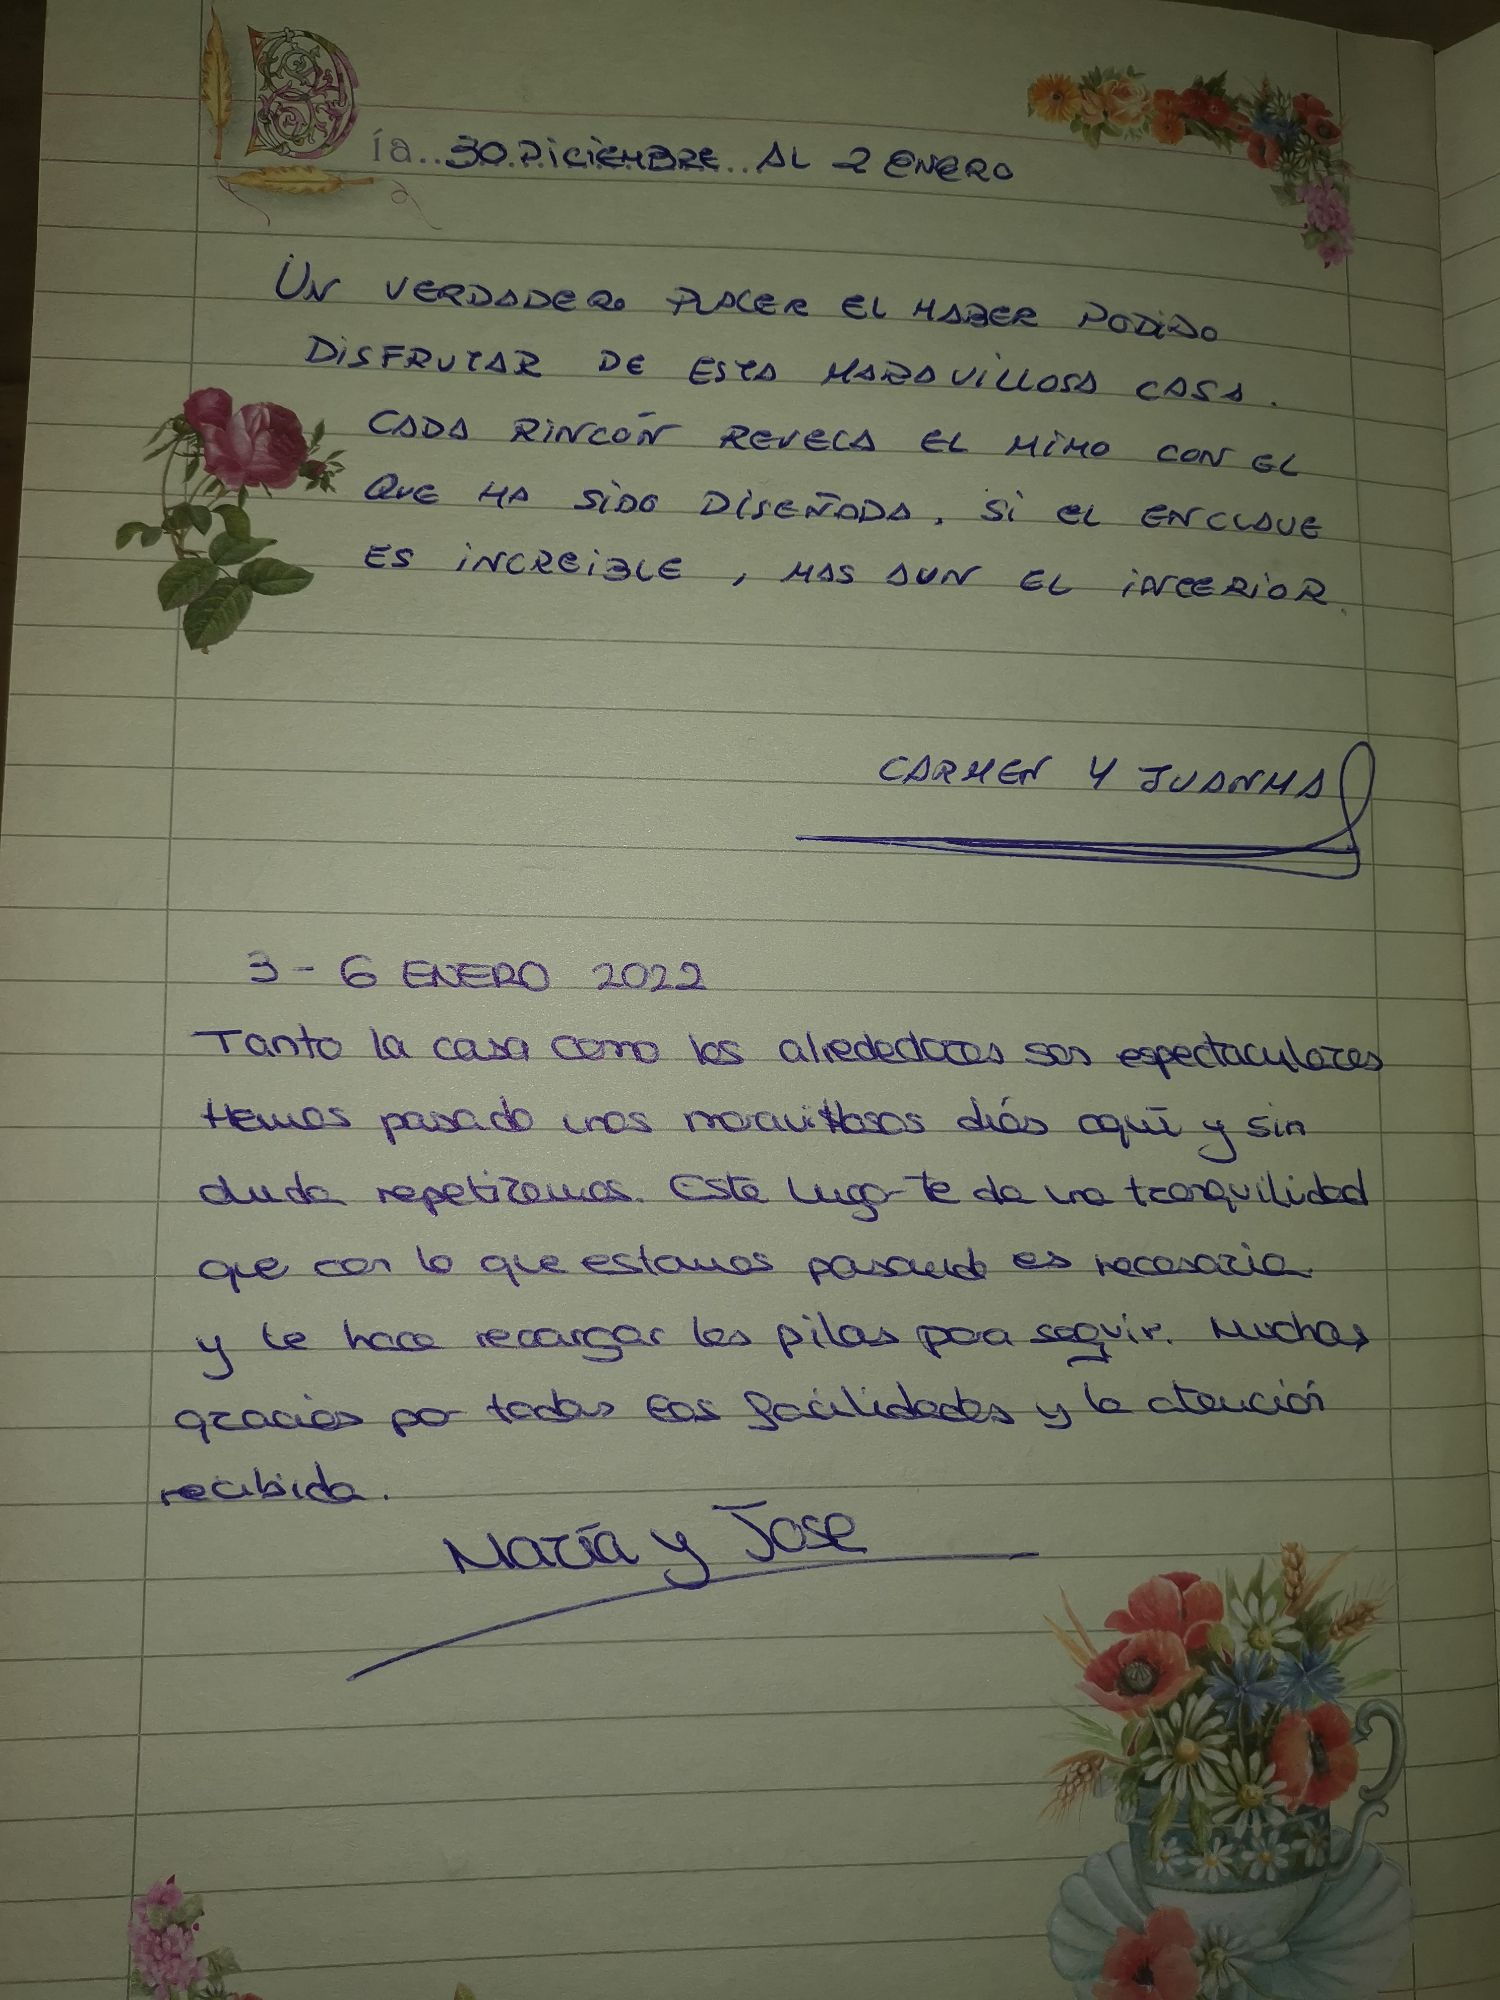 Día..30.DICIEMBRE..AL 2 ENERO
UN VERDADERO PLACER EL HABER PODIDO
DISFRUTAR DE ESTA MARAVILLOSA CASA.
CADA RINCÓN REVELA EL MIMO CON EL
QUE HA SIDO DISEÑADA. SI EL ENCLAVE
ES INCREIBLE, MAS AUN EL INTERIOR.
CARMEN Y JUANMA
3-6 ENERO 2022
Tanto la casa como los alrededores son espectaculares
Hemos pasado unos maravillosos días aquí y sin
duda repetiremos. Este lugar te da una tranquilidad
que con lo que estamos pasando es necesaria
y te hace recargar las pilas para seguir. Muchas
gracias por todas las facilidades y la atención
recibida.
María y Jose